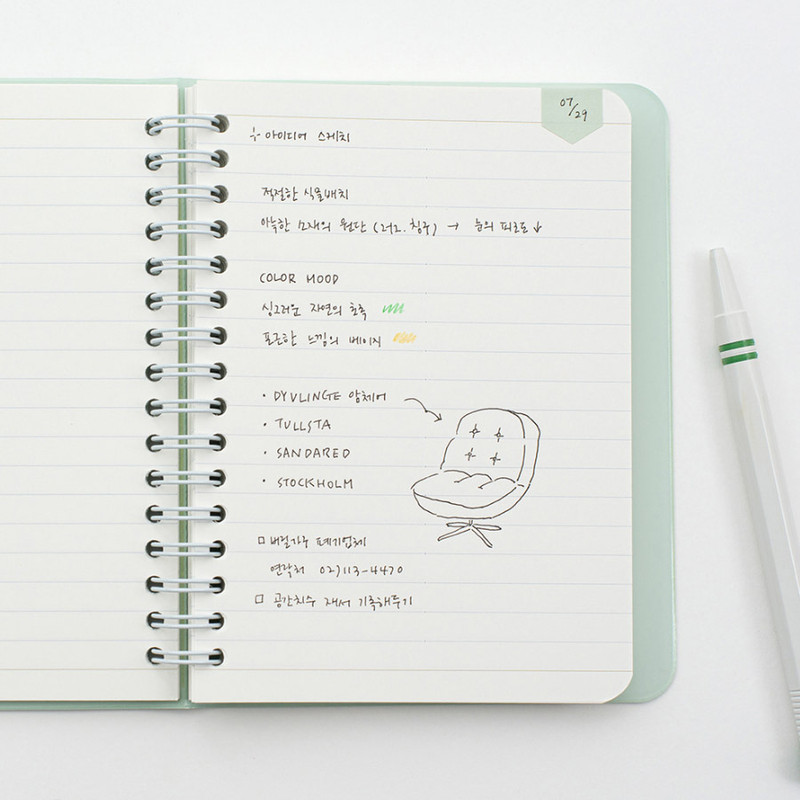 07/29
아이디어 스케치
적절한 식물배치
아늑한 소재의 원단 (러그.침구) → 눈의 피로도↓
COLOR MOOD
싱그러운 자연의 초록
포근한 느낌의 베이지
· DYVLINGE 암체어
· TULLSTA
· SANDARED
· STOCKHOLM
□ 버릴가구 폐기업체
연락처 02)113-4470
□ 공간치수 재서 기록해두기